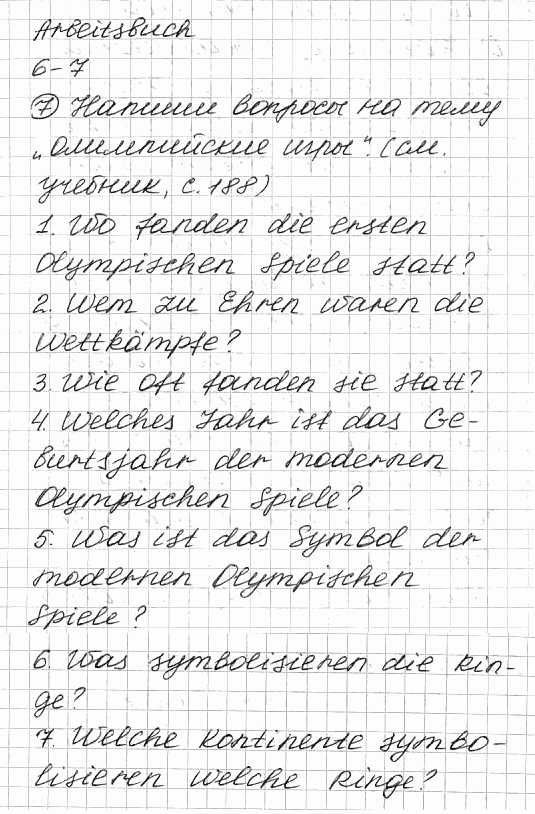 Arbeitsbuch
6-7
7 Напиши вопросы на тему
„Олимпийские игры". (см.
учебник, с. 188)
1. Wo fanden die ersten
Olympischen Spiele statt?
2. Wem zu Ehren waren die
Wettkämpfe?
3. Wie oft fanden sie statt?
4. Welches Jahr ist das Ge-
burtsjahr der modernen
Olympischen Spiele?
5. Was ist das Symbol der
modernen Olympischen
Spiele?
6. Was symbolisieren die Rin-
ge?
7. Welche Kontinente symbo-
lisieren welche Ringe?